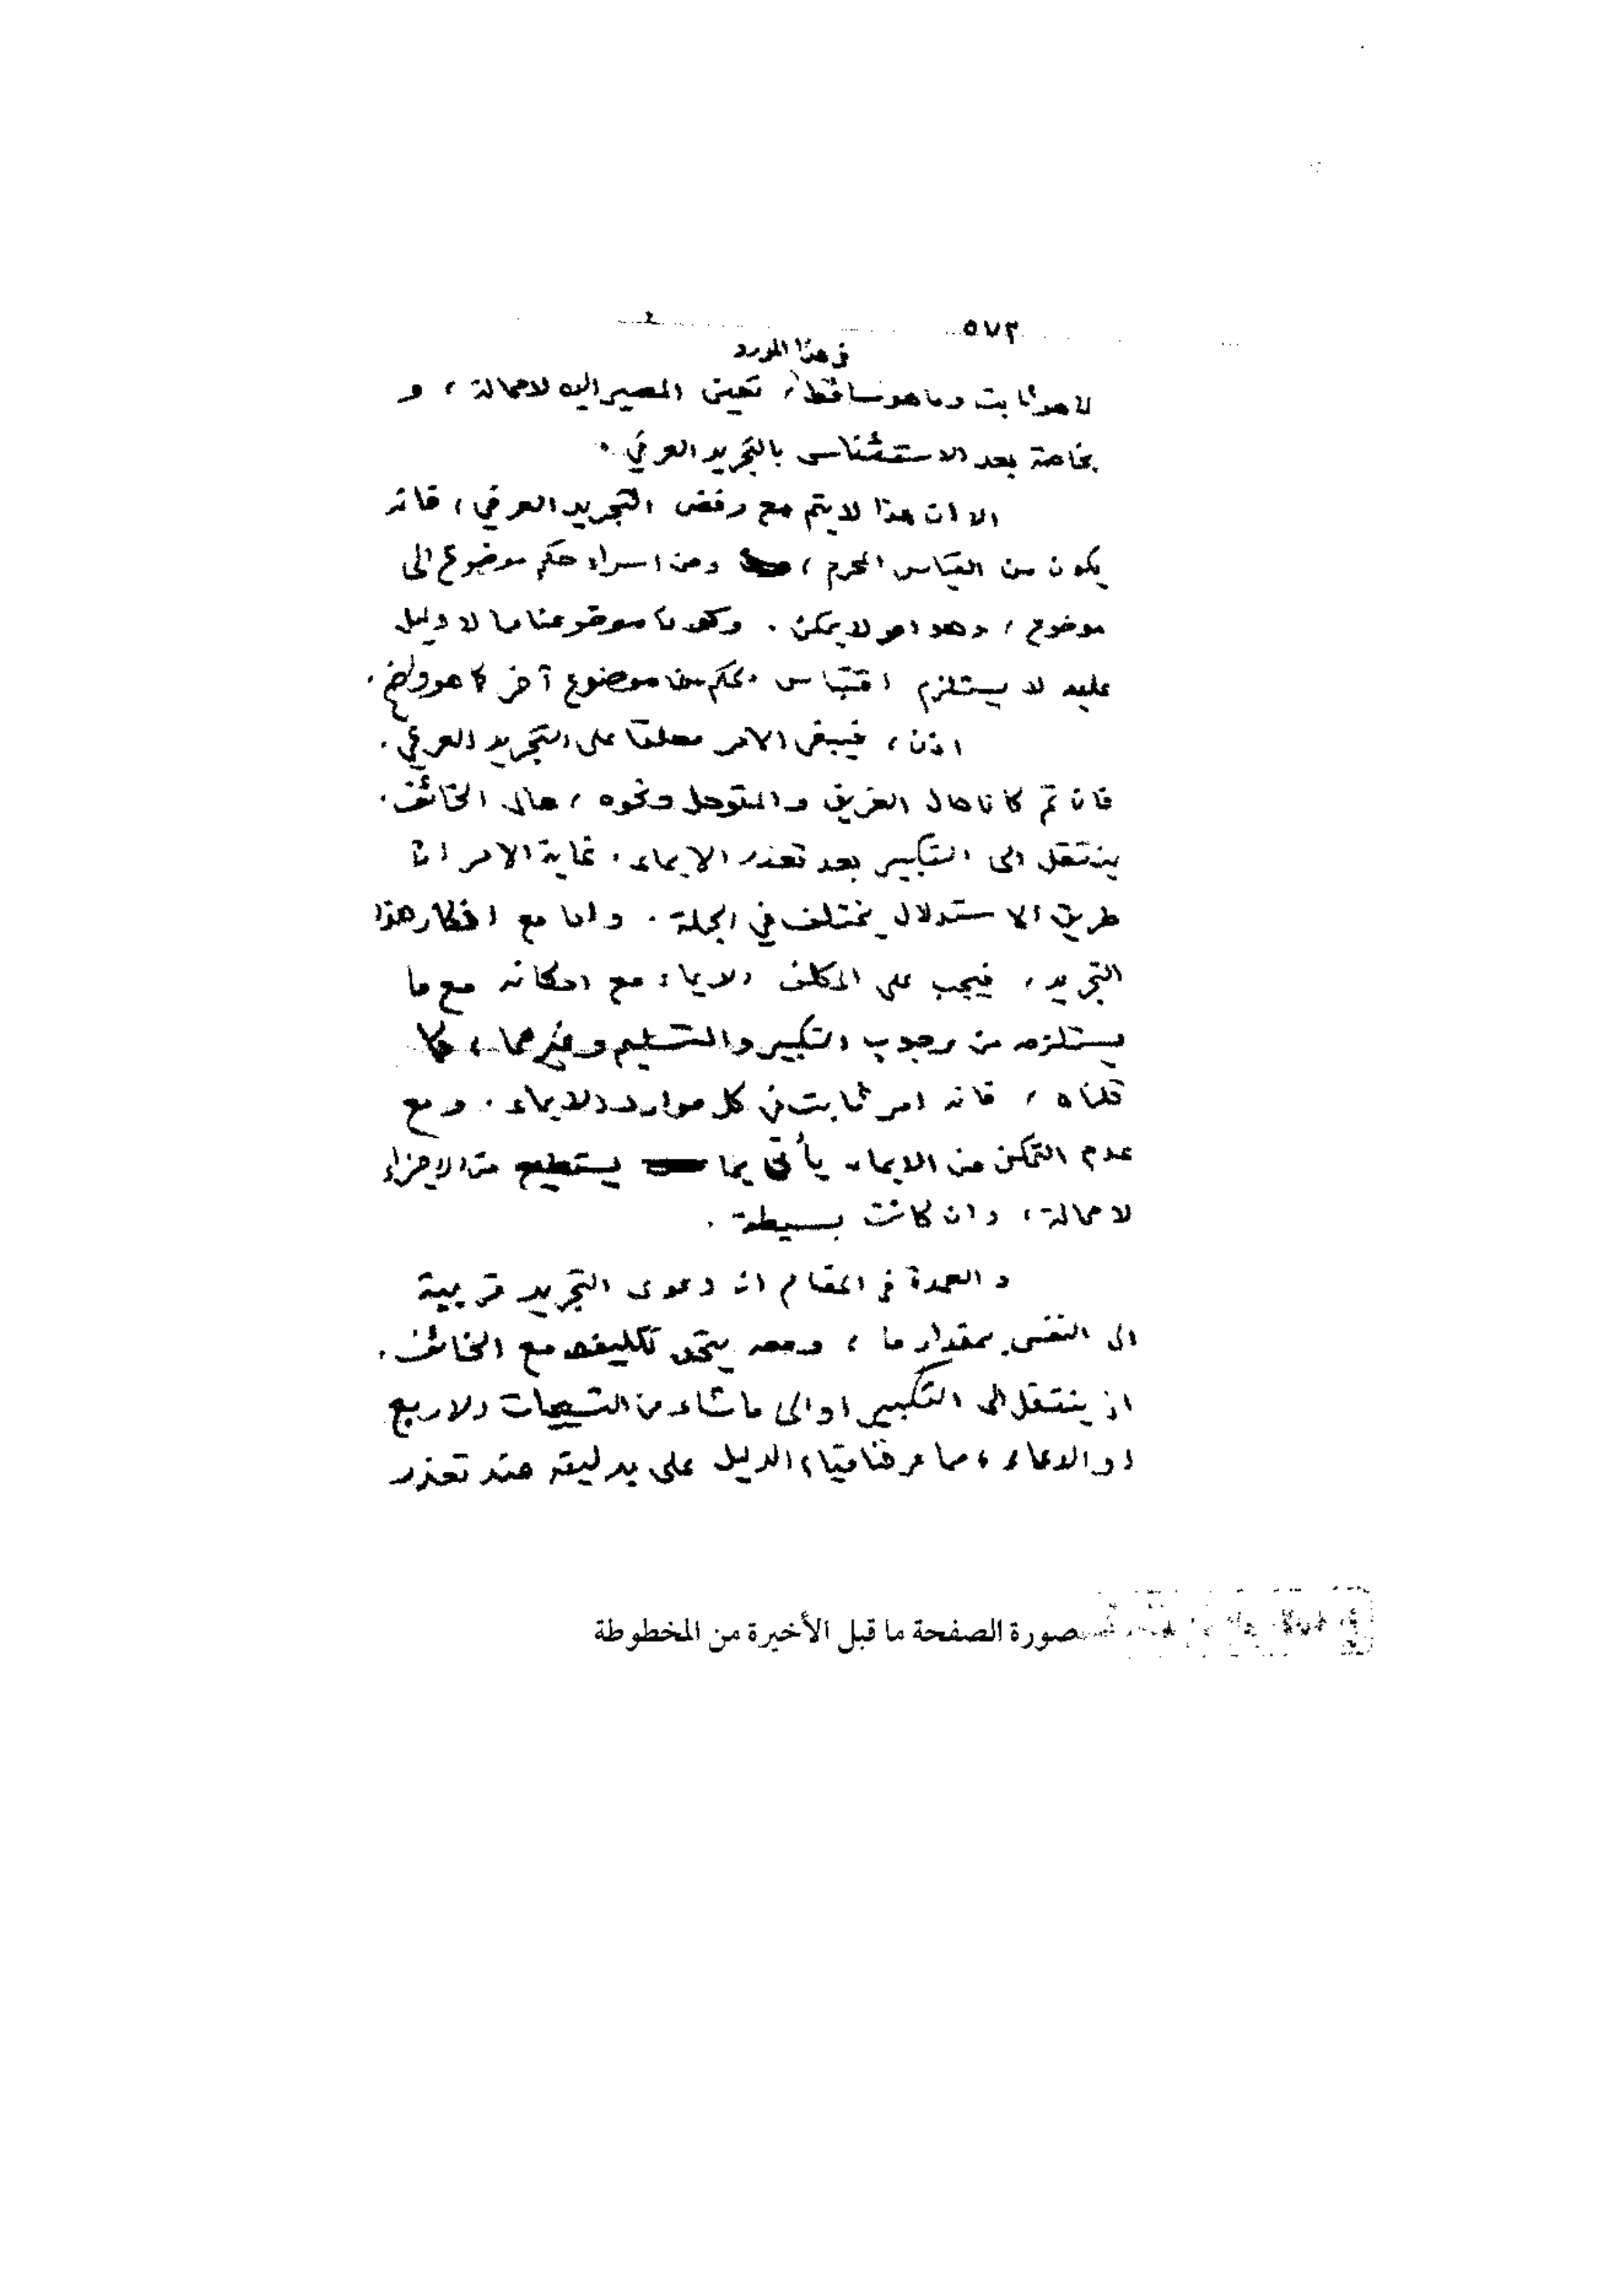 ٥٧٢
في هذا المورد
لا هو ثابت وما هو ساقط، تعين المصير اليه لا محالة، و
بخاصة بعد الاستئناس بالتجريد العرفي.
الا ان هذا لا يتم مع رفض التجريد العرفي، فانه
يكون من القياس المحرم، ومن اسراء حكم موضوع الى
موضوع، وهو امر لا يمكن. وكون موضوعنا مما لا دليل
عليه لا يستلزم اقتباس حكم من موضوع آخر كما هو واضح.
اذن، فيبقى الامر معلقا على التجريد العرفي.
فان تم كان حال الغريق والمتوحل ونحوه، حال الخائف.
ينتقل الى التكبير بعد تعذر الايماء. غاية الامر ان
طريق الاستدلال يختلف في الجملة. واما مع انكار هذا
التجريد، فيجب على المكلف الايماء مع امكانه مع ما
يستلزمه من وجوب التكبير والتسليم وغيرهما، كما
قلناه، فانه امر ثابت في كل موارد الايماء. ومع
عدم التمكن من الايماء يأتي بما يستطيع من الاجزاء
لا محالة، وان كانت بسيطة.
و العمدة في المقام ان دعوى التجريد قريبة
الى النفس بمقدار ما، ومعه يتحد تكليفه مع الخائف.
اذ ينتقل الى التكبير او الى ما شاء من التسبيحات الاربع
او الدعاء، مما عرفنا قيام الدليل على بدليته عند تعذر
صورة الصفحة ما قبل الأخيرة من المخطوطة